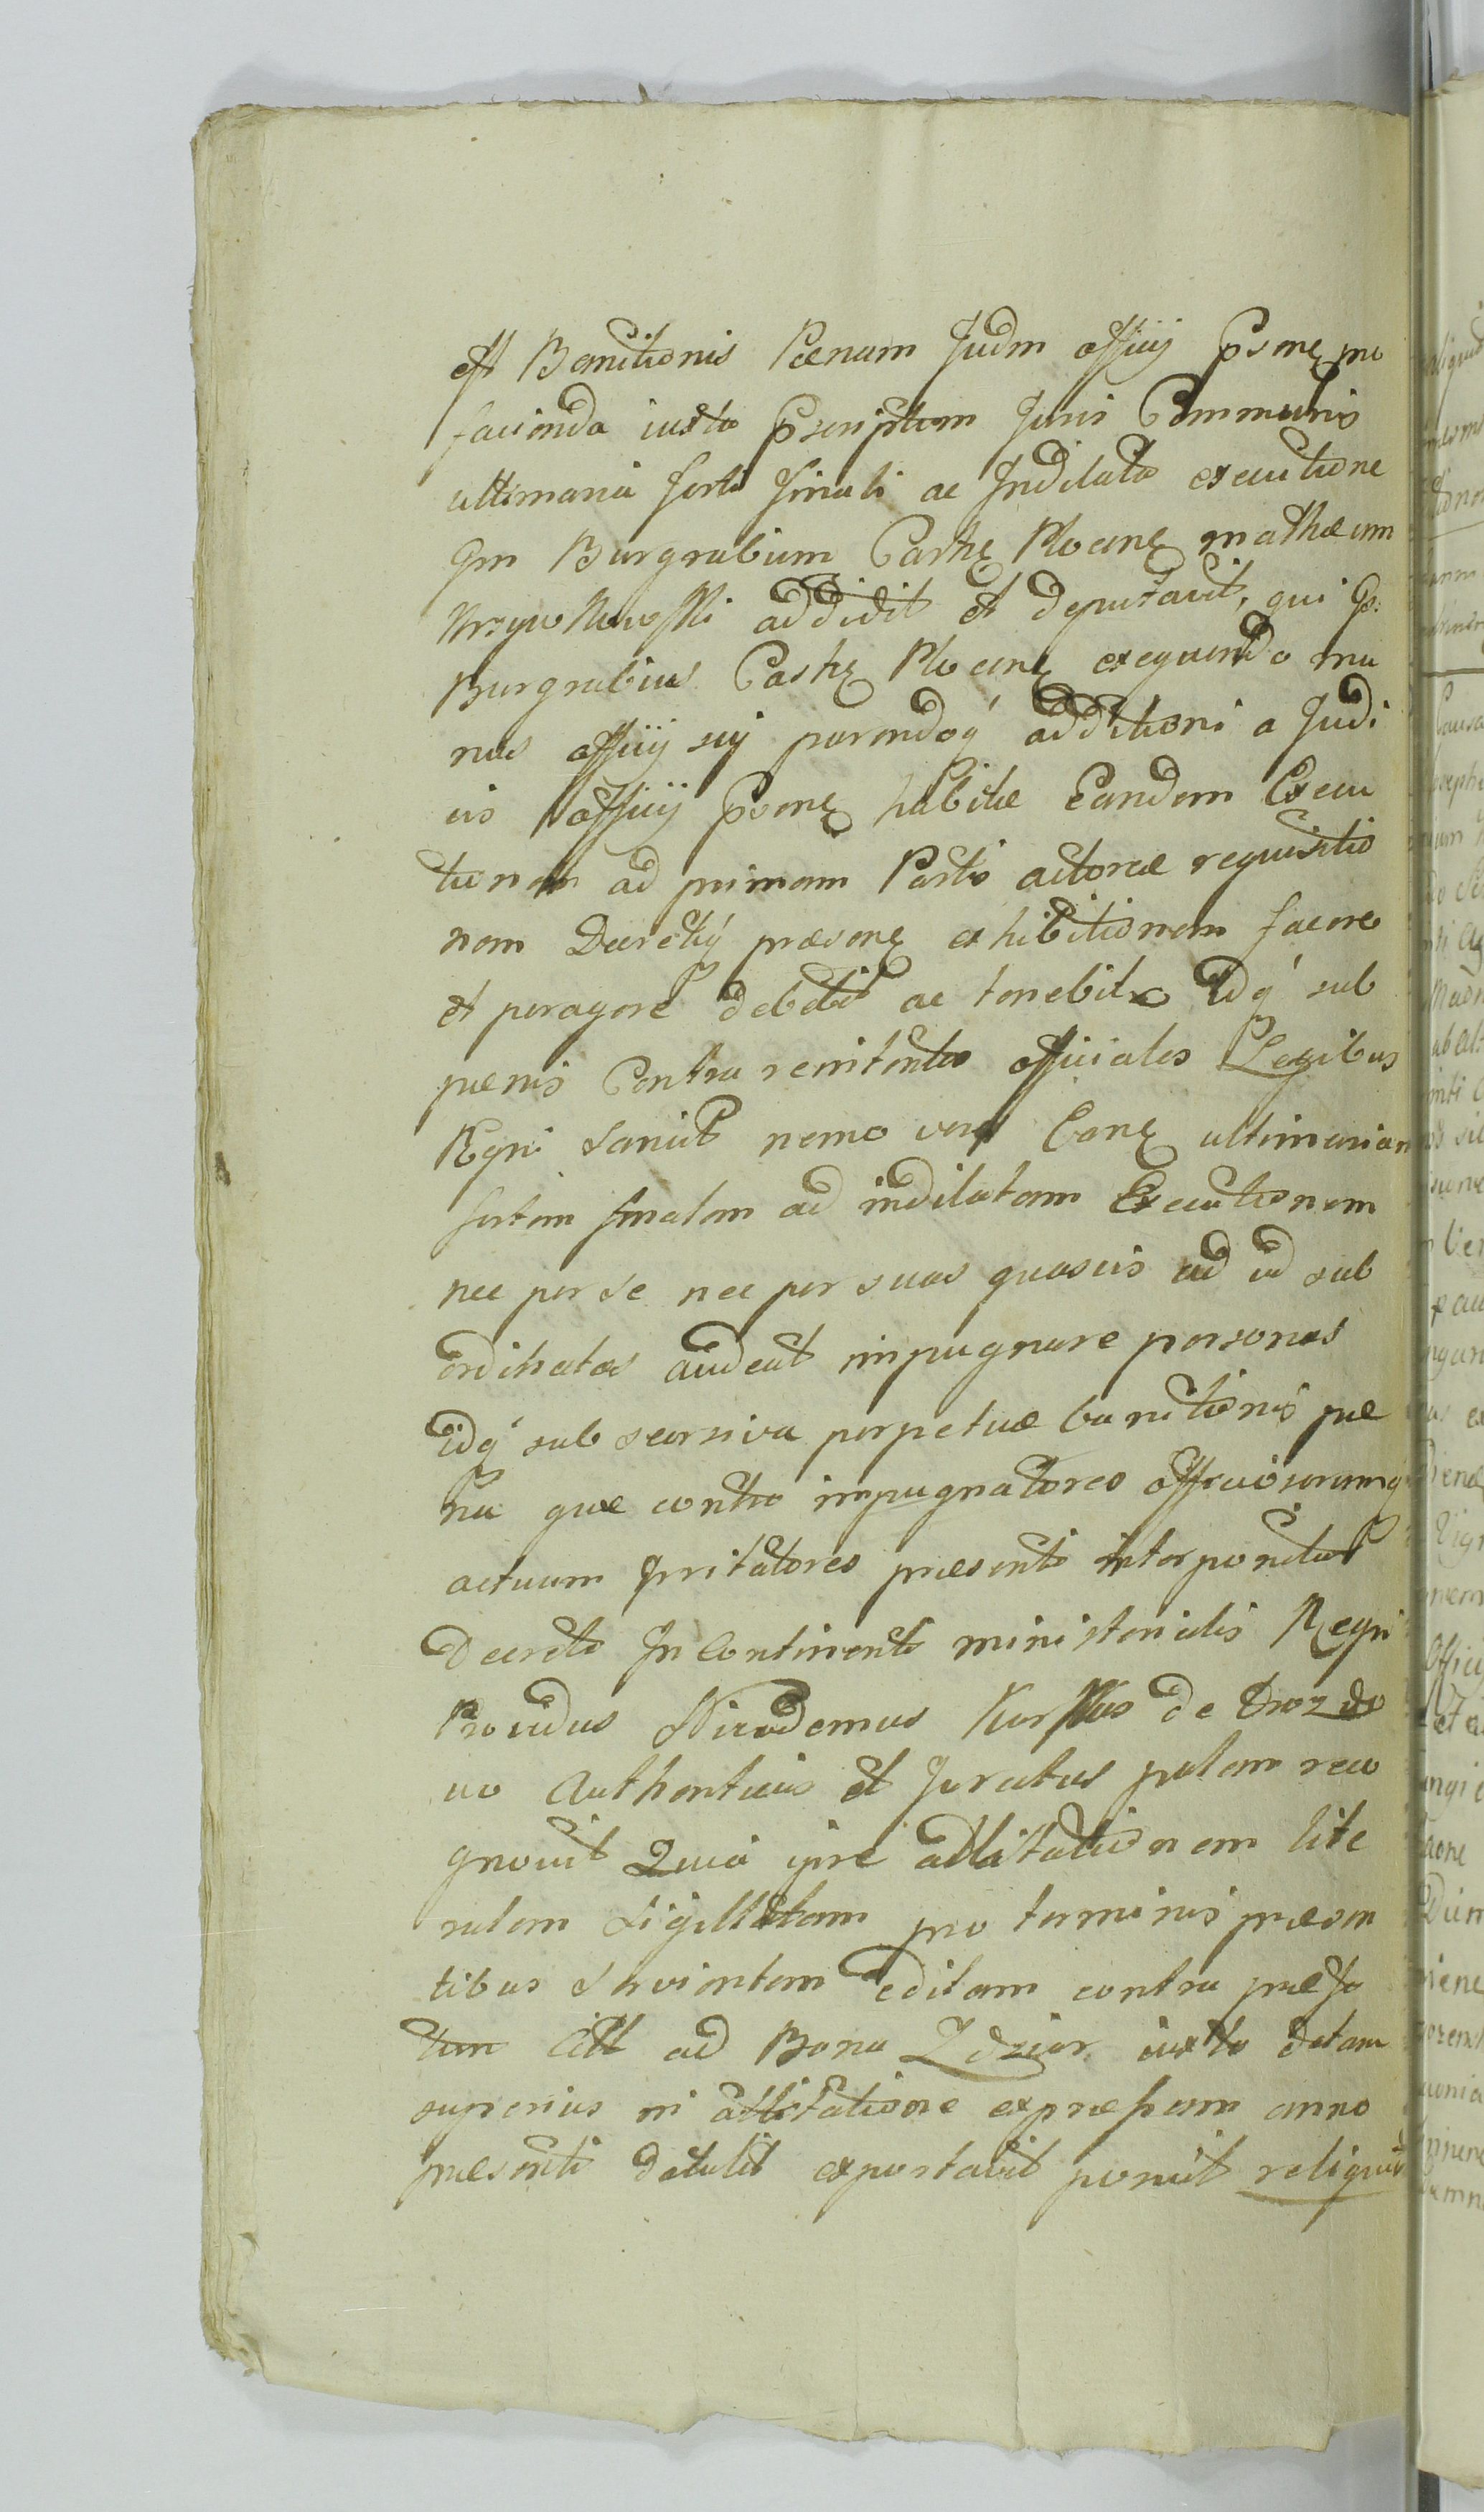 et Banitionis Pænam Judm officij Psonę pro
facienda iuxta Pscriptum Juris Communis
ultimaria forti finali ac Indilata executione
Gm Burgrabium Castrę Plocenę Mathæum
addidit et deputavit, qui G:
Burgrabius Castrę Plocenę exequendo mu
nus officij sui parendoq' additioni a Judi
cio officij Psonę habitæ Eandem Execu
tionem ad primam Partis actoreæ requisitio
nem Decretiq' præsonę exhibitionem facere
et peragere debebit ac tenebitur Idq' sub
pænis Contra renitentes officiales Legibus
Regni sancit nemo vero Eanę ultimariam
fortem finalem ad indilatam Executionem
nec per se nec per suas quasvis ad id sub
ordinatas audeat impugnare personas
idq' sub seorsiva perpetuæ banitionis pæ
na quæ contra impugnatores officiosorumq'
actuum irritatores præsenti interponitur
Decreto In Continenti ministerialis Regni
Providus Nicodemus de Drozdo
vo Authenticus et Juratus palam reco
gnovit Quia ipse adcitationem lite
ralem sigillatam pro terminis præsen
tibus servientem editam contra præfa
tum Citt ad Bona Zdziar iuxta datam
superius in adcitatione expressam anno
præsenti detulit exportavit posuit reliquit